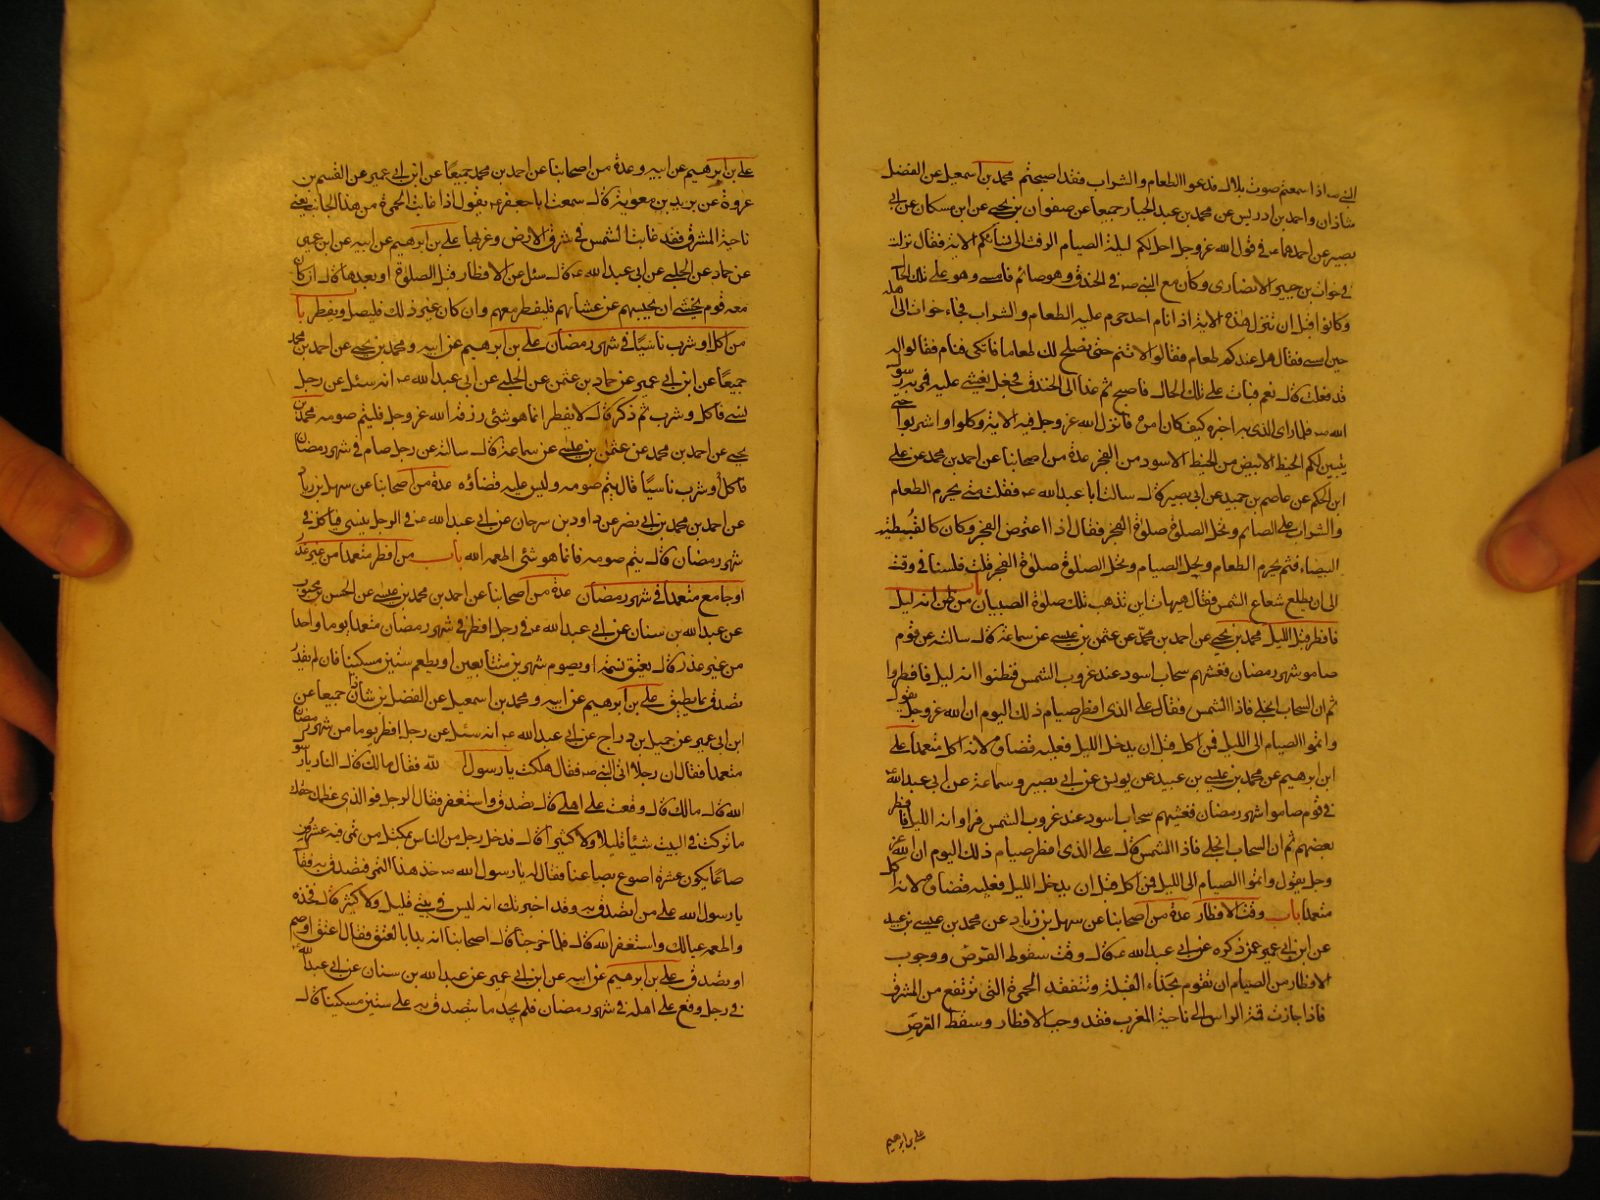 النبي صه اذا سمعتم صوت بلال فدعوا الطعام والشراب فقد اصبحتم محمد بن اسمعيل عن الفضل
شاذان واحمد بن ادريس عن محمد بن عبد الجبار جميعا عن صفوان بن يحيى عن ابن مسكان عن ابى
بصير عن احدهما عه فى قول الله عز وجل احل لكم ليلة الصيام الرفث الى نسائكم الاية فقال نزلت
فى خوات بن جبير الانصارى وكان مع النبي صه فى الخندق وهو صائم فامسى وهو على تلك الحال
وكانوا قبل ان تنزل هذه الاية اذا نام احدهم حرم عليه الطعام والشراب فجاء خوات الى اهله
حين امسى فقال هل عندكم طعام فقالوا لا تنم حتى نصلح لك طعاما فاتكى فنام فقالوا له
قد فعلت قال نعم فبات على تلك الحال فاصبح ثم غدا الى الخندق فجعل يغشى عليه فمر به رسول
الله صه فلما راى الذى به اخبره كيف كان امره فانزل الله عز وجل فيه الاية وكلوا واشربوا حتى
يتبين لكم الخيط الابيض من الخيط الاسود من الفجر عدة من اصحابنا عن احمد بن محمد عن على
ابن الحكم عن عاصم بن حميد عن ابى بصير قال سالت ابا عبد الله عه فقلت متى يحرم الطعام
والشراب على الصائم وتحل الصلوة صلوة الفجر فقال اذا اعترض الفجر وكان كالقبطية
البيضاء فثم يحرم الطعام ويحل الصيام وتحل الصلوة صلوة الفجر قلت فلسنا فى وقت
الى ان يطلع شعاع الشمس فقال هيهات اين تذهب تلك صلوة الصبيان باب من ظن انه ليل
فافطر قبل الليل محمد بن يحيى عن احمد بن محمد عن عثمن بن عيسى عن سماعة قال سالته عن قوم
صاموا شهر رمضان فغشيهم سحاب اسود عند غروب الشمس فظنوا انه ليل فافطروا
ثم ان السحاب انجلى فاذا الشمس فقال على الذى افطر صيام ذلك اليوم ان الله عز وجل يقول
واتموا الصيام الى الليل فمن اكل قبل ان يدخل الليل فعليه قضاؤه لانه اكل متعمدا على
ابن ابرهيم عن محمد بن عيسى بن عبيد عن يونس عن ابى بصير وسماعة عن ابى عبد الله عه
فى قوم صاموا شهر رمضان فغشيهم سحاب اسود عند غروب الشمس فراوا انه الليل فافطر
بعضهم ثم ان السحاب انجلى فاذا الشمس قال على الذى افطر صيام ذلك اليوم ان الله عز
وجل يقول واتموا الصيام الى الليل فمن اكل قبل ان يدخل الليل فعليه قضاؤه لانه اكل
متعمدا باب وقت الافطار عدة من اصحابنا عن سهل بن زياد عن محمد بن عيسى بن عبيد
عن ابن ابى عمير عمن ذكره عن ابى عبد الله عه قال وقت سقوط القرص ووجوب
الافطار من الصيام ان تقوم بحذاء القبلة وتتفقد الحمرة التى ترتفع من المشرق
فاذا جازت قمة الراس الى ناحية المغرب فقد وجب الافطار وسقط القرص
على بن ابرهيم
على بن ابرهيم عن ابيه وعدة من اصحابنا عن احمد بن محمد جميعا عن ابن ابى عمير عن القسم بن
عروة عن بريد بن معوية قال سمعت ابا جعفر عه يقول اذا غابت الحمرة من هذا الجانب يعنى
ناحية المشرق فقد غابت الشمس فى شرق الارض وغربها على بن ابرهيم عن ابيه عن ابن ابى عمير
عن حماد عن الحلبى عن ابى عبد الله عه قال سئل عن الافطار قبل الصلوة او بعدها قال ان كان
معه قوم يخشى ان يحبسهم عن عشائهم فليفطر معهم وان كان غير ذلك فليصل ويفطر باب
من اكل او شرب ناسيا فى شهر رمضان على بن ابرهيم عن ابيه ومحمد بن يحيى عن احمد بن محمد
جميعا عن ابن ابى عمير عن حماد بن عثمن عن الحلبى عن ابى عبد الله عه انه سئل عن رجل
نسى فاكل وشرب ثم ذكر قال لا يفطر انما هو شئ رزقه الله عز وجل فليتم صومه محمد بن
يحيى عن احمد بن محمد عن عثمن بن عيسى عن سماعة قال سالته عن رجل صام فى شهر رمضان
فاكل وشرب ناسيا قال يتم صومه وليس عليه قضاؤه عدة من اصحابنا عن سهل بن زياد
عن احمد بن محمد بن ابى نصر عن داود بن سرحان عن ابى عبد الله عه فى الرجل ينسى فياكل فى
شهر رمضان قال يتم صومه فانما هو شئ اطعمه الله باب من افطر متعمدا من غير عذر
او جامع متعمدا فى شهر رمضان عدة من اصحابنا عن احمد بن محمد بن عيسى عن الحسن بن محبوب
عن عبد الله بن سنان عن ابى عبد الله عه فى رجل افطر فى شهر رمضان متعمدا يوما واحدا
من غير عذر قال يعتق نسمة او يصوم شهرين متتابعين او يطعم ستين مسكينا فان لم يقدر
تصدق بما يطيق على بن ابرهيم عن ابيه ومحمد بن اسمعيل عن الفضل بن شاذان جميعا عن
ابن ابى عمير عن جميل بن دراج عن ابى عبد الله عه انه سئل عن رجل افطر يوما من شهر رمضان
متعمدا فقال ان رجلا اتى النبي صه فقال هلكت يا رسول الله فقال مالك قال النار يا رسول
الله قال مالك قال وقعت على اهلى قال تصدق واستغفر فقال الرجل فوالذى عظم حقك
ما تركت فى البيت شيئا قليلا ولا كثيرا قال فدخل رجل من الناس بمكتل من تمر فيه عشرون
صاعا يكون عشرة اصوع بصاعنا فقال له يا رسول الله صه خذ هذا التمر فتصدق به فقال
يا رسول الله على من اتصدق به وقد اخبرتك انه ليس فى بيتى قليل ولا كثير قال فخذه
واطعمه عيالك واستغفر الله قال فلما خرجنا قال اصحابنا انه بدا بالعتق فقال اعتق او صم
او تصدق على بن ابرهيم عن ابيه عن ابن ابى عمير عن عبد الله بن سنان عن ابى عبد الله عه
فى رجل وقع على اهله فى شهر رمضان فلم يجد ما يتصدق به على ستين مسكينا قال